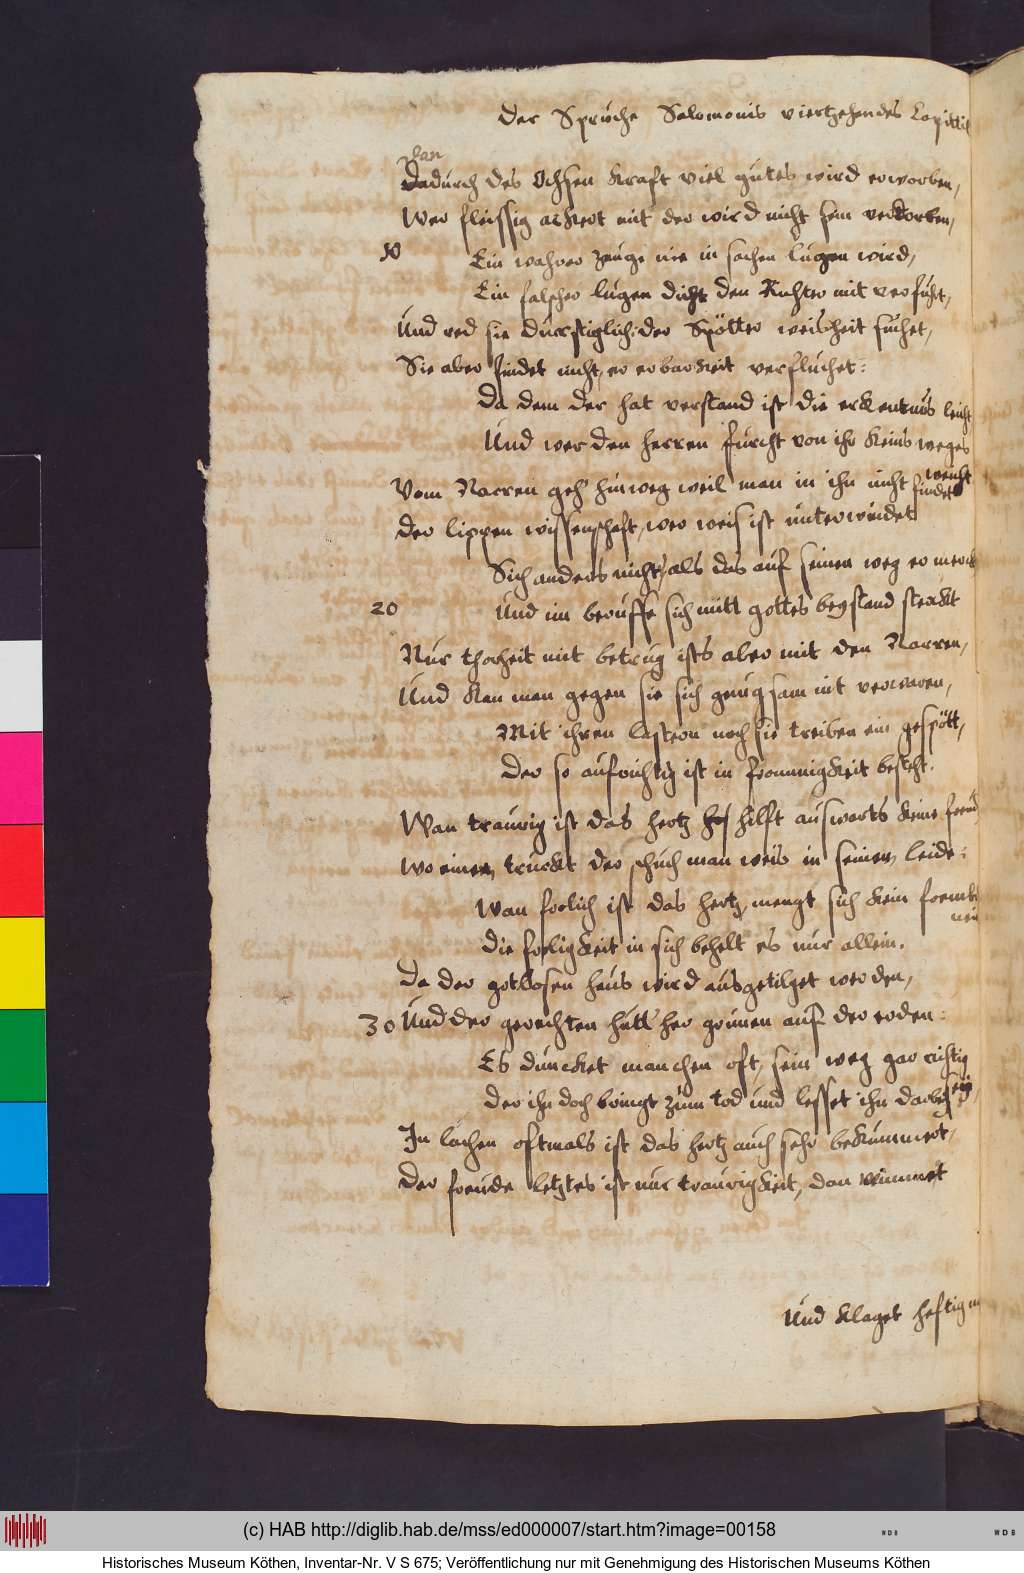 Der Sprüche Salomonis viertzehendes Capittil
Dan
Dadurch des Ochsen Kraft viel gutes wird erworben,
Wer fleissig ackert mit der wird nicht sein verdorben,
10
Ein wahrer zeuge nie in sachen lugen wird,
Ein falscher lugen dicht den Richter mit verfuhrt,
Und red sie durstiglich: der Spötter weisheit suchet,
Sie aber findet nicht, er erbarkeit verfluchet:
Da dem der hat verstand ist die erkentnus leicht
Und wer den herren furcht von ihr keins weges
weicht
Vom Narren geh' hinweg weil man in ihn nicht findet
der lippen wissenschaft, wer weis ist unterwindet
Sich anders nicht, als das auf seinen weg er merck
20
Und im beruffe sich mitt gottes beystand sterckt
Nur thorheit mit betrug ists aber mit den Narren,
Und kan man gegen sie sich genugsam nit verwaren,
Mit ihren lastern noch sie treiben ein gespött,
Der so aufrichtig ist in frommigkeit besteht.
Wan traurig ist das hertz hilft auswarts keine freud
Wo einen truckt der schuch man weis in seinen leide:
Wan frolich ist das hertz mengt sich kein frembd
nein
Die freligkeit in sich behelt es nur allein.
Da der gotlosen haus wird ausgetilget werden,
30 Und der gerechten hutt her grunen auf der erden:
Es duncket manchen oft, sein weg gar richtig
sey,
Der ihn doch bringt zum tod und lesset ihn darbey
In lachen oftmals ist das hertz auch sehr bekummert,
Der freude letztes ist nur traurigkeit, dan wimmert
Und klaget heftig
(c) HAB http://diglib.hab.de/mss/ed000007/start.htm?image=00158
WDB
WDB
Historisches Museum Köthen, Inventar-Nr. V S 675; Veröffentlichung nur mit Genehmigung des Historischen Museums Köthen